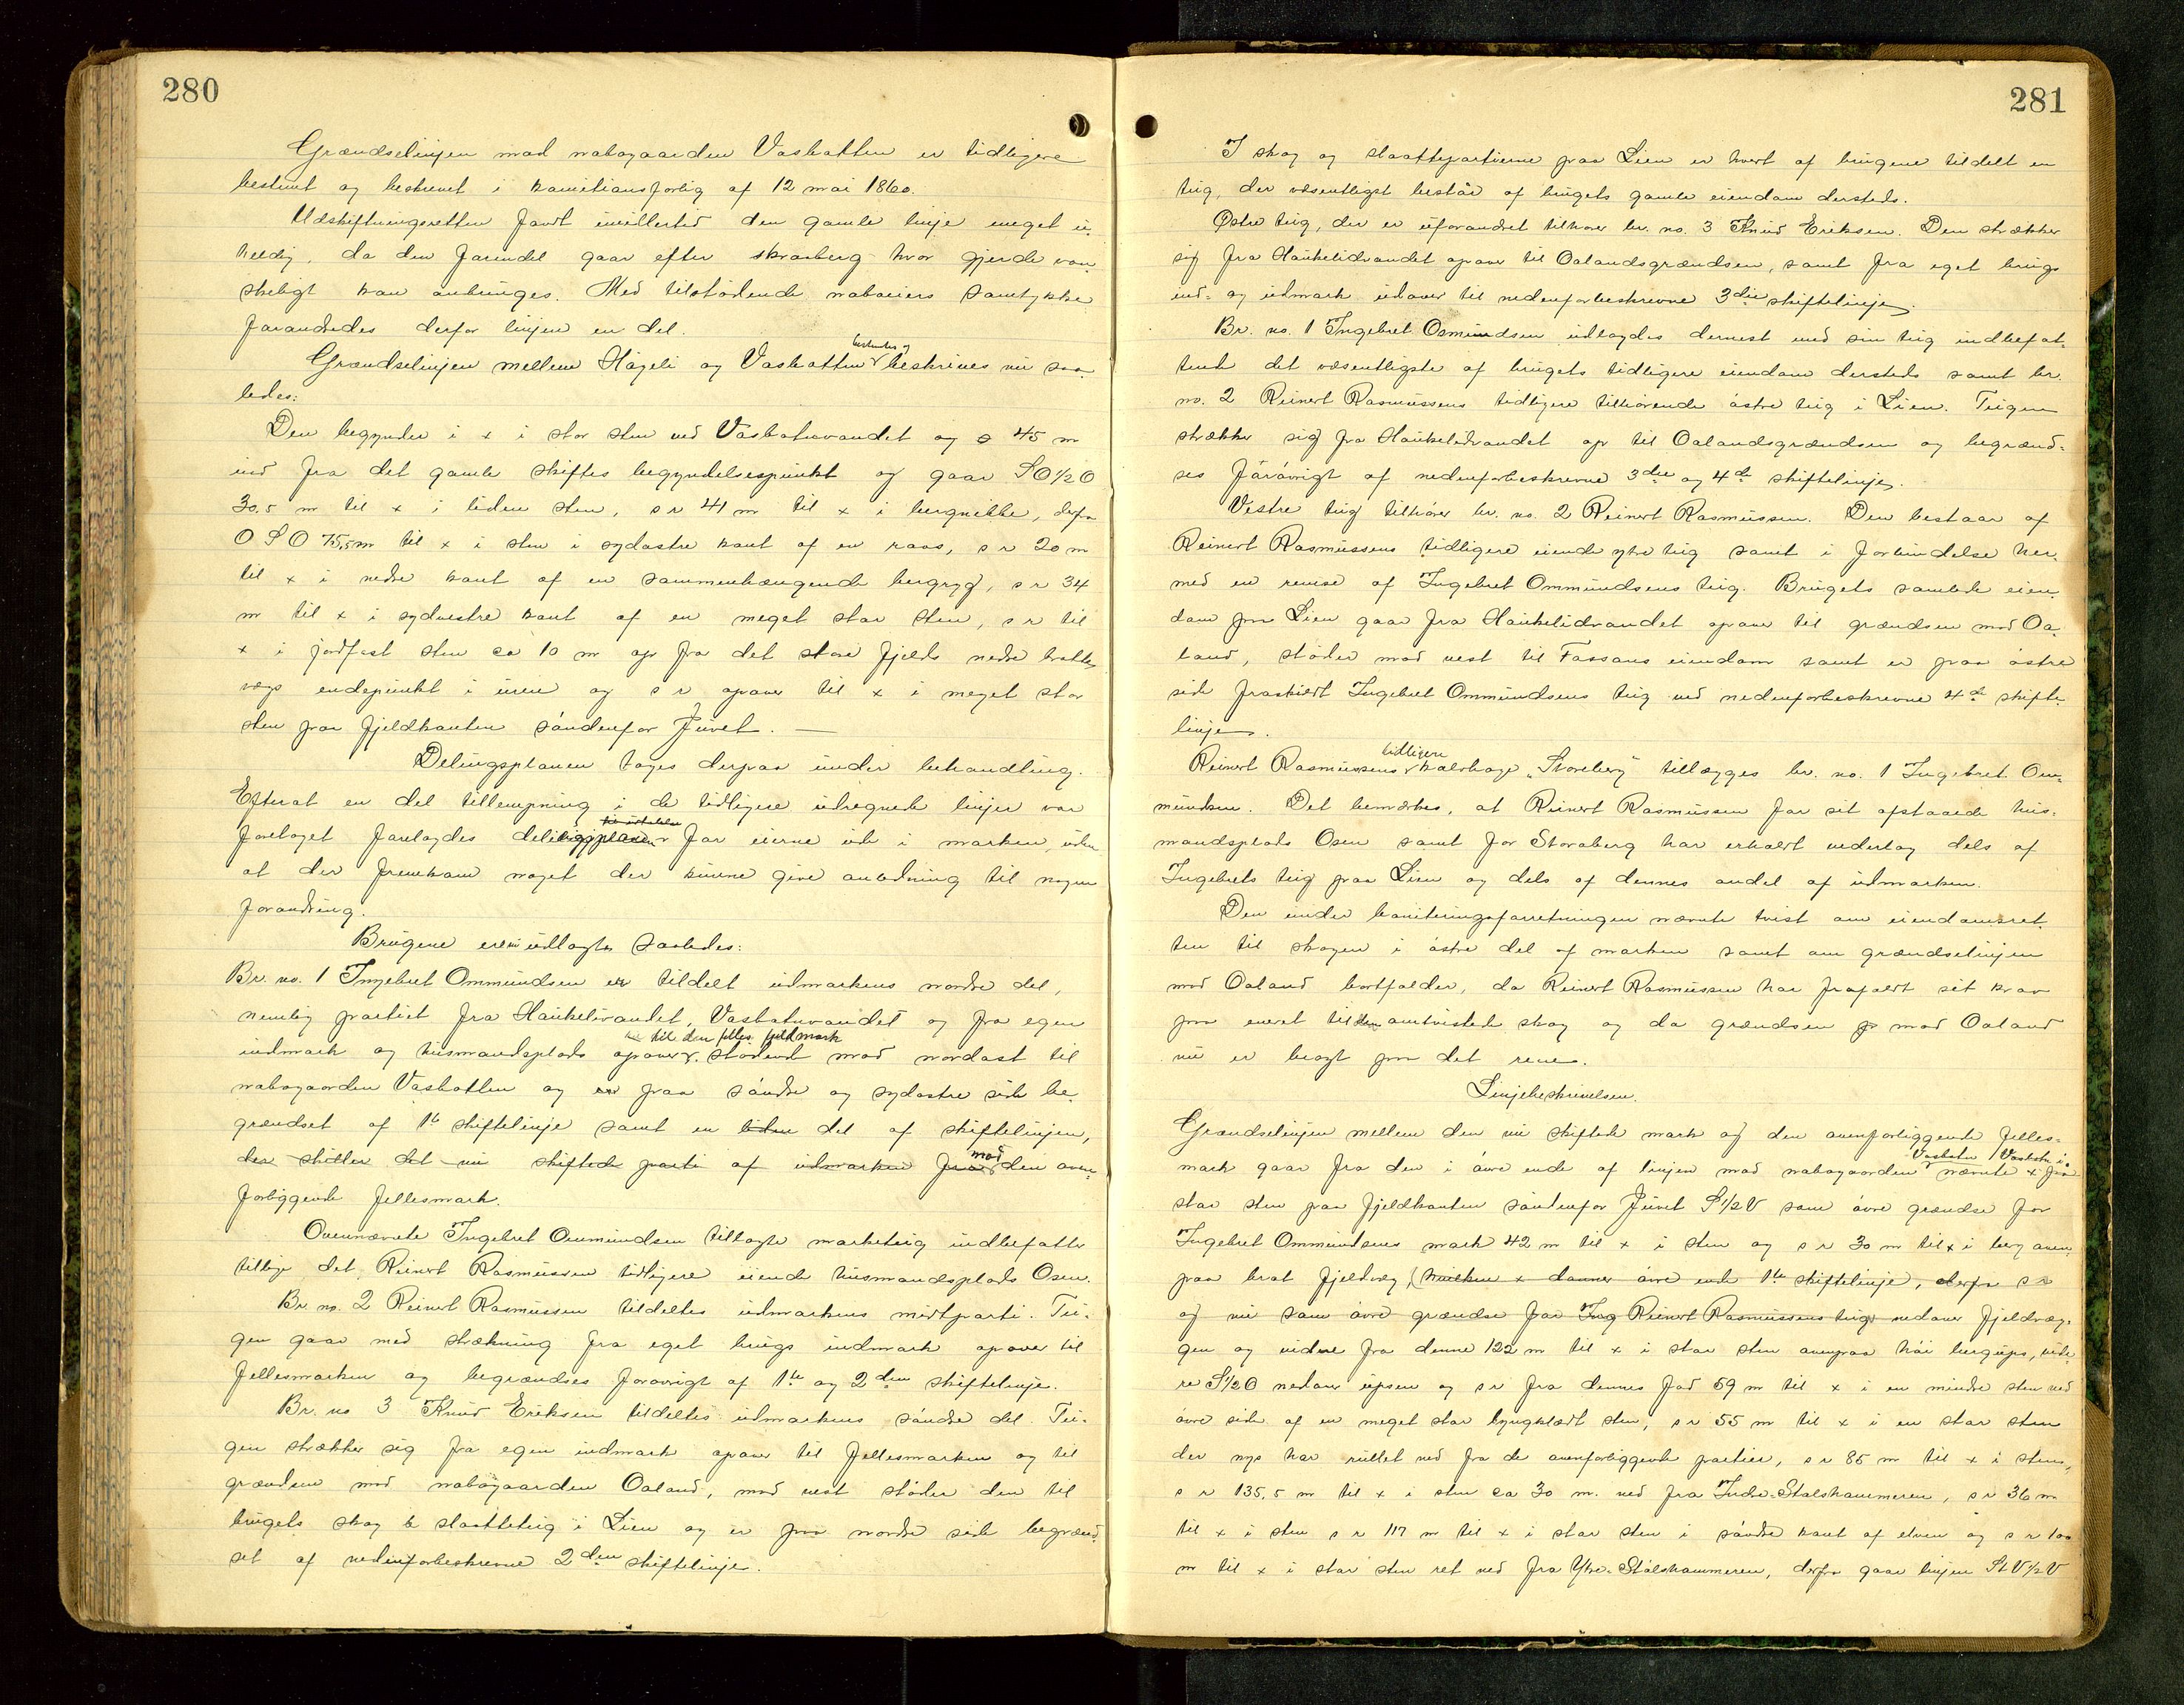 280
Grændselinjen mod nabogaarden Vasbotten er tidligere
bestemt og beskrevet i kommissionsforlig af 12 mai 1860.
Udskiftningsretten fandt imidlertid den gamle linje meget u-
heldig, da den forendel gaar efter skraaberg hvor gjerde van-
skeligt kan anbringes. Med tilstødende naboeiers samtykke
forandredes derfor linjen en del.
Grændselinjen mellem Høgeli og Vasbotten bestemtes og beskrives nu saa-
ledes:
Den begynder i x i stor sten ved Vasbotnvandet og 45 m
ind fra det gamle skiftes begyndelsespunkt og gaar SO1/2O
30,5 m til x i liden sten, s r 41 m til x i bergnibbe, derfra
OSO 75,5 m til x i sten i sydøstre kant af en raas, s r 20 m
til x i nedre kant af en sammenhængende bergryg, s r 34
m til x i sydvestre kant af en meget stor sten, s r til
x i jordfast sten ca 10 m op fra det store fjelds nedre bratte
vægs endepunkt i uren og s r opover til x i meget stor
sten paa fjeldkanten søndenfor Juvet. —
Delingsplanen toges derpaa under behandling.
Efterat en del tillempning i de tidligere udregnede linjer var
foretaget forelagdes delingsplanen for eierne ude i marken, uden
at der fremkom noget der kunne give anledning til nogen
forandring.
Brugene er udlagte saaledes:
Br. no. 1 Ingebret Ommundsen er tildelt udmarkens nordre del,
nemlig partiet fra Haukelivandet, Vasbotnvandet og fra egen
indmark og husmandsplads opover til den fælles fjeldmark stødende mod nordøst til
nabogaarden Vasbotten og er paa søndre og sydøstre side be-
grændset af 1ste skiftelinje samt en liden del af skiftelinjen,
der skiller det nu skiftede parti af udmarken fra mod den oven-
forliggende fellesmark.
Ovennævnte Ingebret Ommundsen tillagte markteig indbefatter
tillige det Reinert Rasmussen tidligere eiende husmandsplads Osen.
Br. no. 2 Reinert Rasmussen tildeltes udmarkens midtparti. Tei-
gen gaar med strækning fra eget brugs indmark opover til
fellesmarken og begrændses forøvrigt af 1ste og 2den skiftelinje.
Br. no 3 Knud Eriksen tildeltes udmarkens søndre del. Tei-
gen strækker sig fra egen indmark opover til fellesmarken og til
grændsen mod nabogaarden Oaland, mod vest støder den til
brugets skog & slaatteteig i Lien og er paa nordre side begrænd-
set af nedenforbeskrevne 2den skiftelinje.
281
I skog og slaattepartierne paa Lien er hvert af brugene tildelt en
teig, der væsentligst består af brugets gamle eiendom dersteds.
Østre teig, der er uforandret tilhører br. no. 3 Knud Eriksen. Den strækker
sig fra Haukelidvandet opover til Oalandsgrændsen, samt fra eget brugs
ind- og udmark udover til nedenforbeskrevne 3die skiftelinje.
Br. no. 1 Ingebret Osmundsen udlagdes dernest med sin teig indbefat-
tende det væsentligste af brugets tidligere eiendom dersteds samt br.
no. 2 Reinert Rasmussens tidligere tilhørende østre teig i Lien. Teigen
strækker sig fra Haukelidvandet op til Oalandsgrændsen og begrænd-
ses forøvrigt af nedenforbeskrevne 3die og 4de skiftelinje.
Vestre teig tilhører br. no. 2 Reinert Rasmussen. Den bestaar af
Reinert Rasmussens tidligere eiende ytre teig samt i forbindelse her-
med en remse af Ingebret Ommundsens teig. Brugets samlede eien-
dom paa Lien gaar fra Haukelidvandet opover til grændsen mod Oa-
land, støder mod vest til Fassaus eiendom samt er paa østre
side fraskildt Ingebret Ommundsens teig ved nedenforbeskrevne 4de skifte-
linje.
Reinert Rasmussens tidligere kalvhage „Storeberg" tillægges br. no. 1 Ingebret Om-
mundsen. Det bemærkes, at Reinert Rasmussen for sit afstaaede hus-
mandsplads Osen samt for Storaberg har erholdt vederlag dels af
Ingebrets teig paa Lien og dels af dennes andel af udmarken.
Den under boniteringsforretningen nævnte tvist om eiendomsret-
ten til skogen i østre del af marken samt om grændselinjen
mod Oaland bortfalder, da Reinert Rasmussen har frafaldt sit krav
paa eneret til den omtvistede skog og da grændsen mod Oaland
nu er bragt paa det rene.
Linjebeskrivelsen.
Grændselinjen mellem den nu skiftede mark og den ovenforliggende felles-
mark gaar fra den i øvre ende af linjen mod nabogaarden Vasbotn nævnte x i
stor sten paa fjeldkanten søndenfor Juvet S1/2V som øvre grændse for
Ingebret Ommundsens mark 42 m til x i sten og s r 30 m til x i berg oven
paa brat fjeldvæg, (hvilken x danner øvre ende 1ste skiftelinje, derfra s r
og nu som øvre grændse for Ing Reinert Rasmussens teig nedover fjeldvæg-
gen og videre fra denne 122 m til x i stor sten ovenpaa høi bergups, vide-
re S1/2O nedover upsen og s r fra dennes fod 59 m til x i en mindre sten ved
øvre side af en meget stor lyngklædt sten, s r 55 m til x i en stor sten
der nys har rullet ned fra de ovenforliggende partier, s r 85 m til x i sten,
s r 135,5 m til x i sten ca 30 m. ned fra Indre-Stølshammeren, s r 36 m
til x i sten s r 117 m til x i stor sten i søndre kant af elven og s r 100
m til x i stor sten ret ned fra Ytre-Stølshammeren, derfra gaar linjen StV1/2V